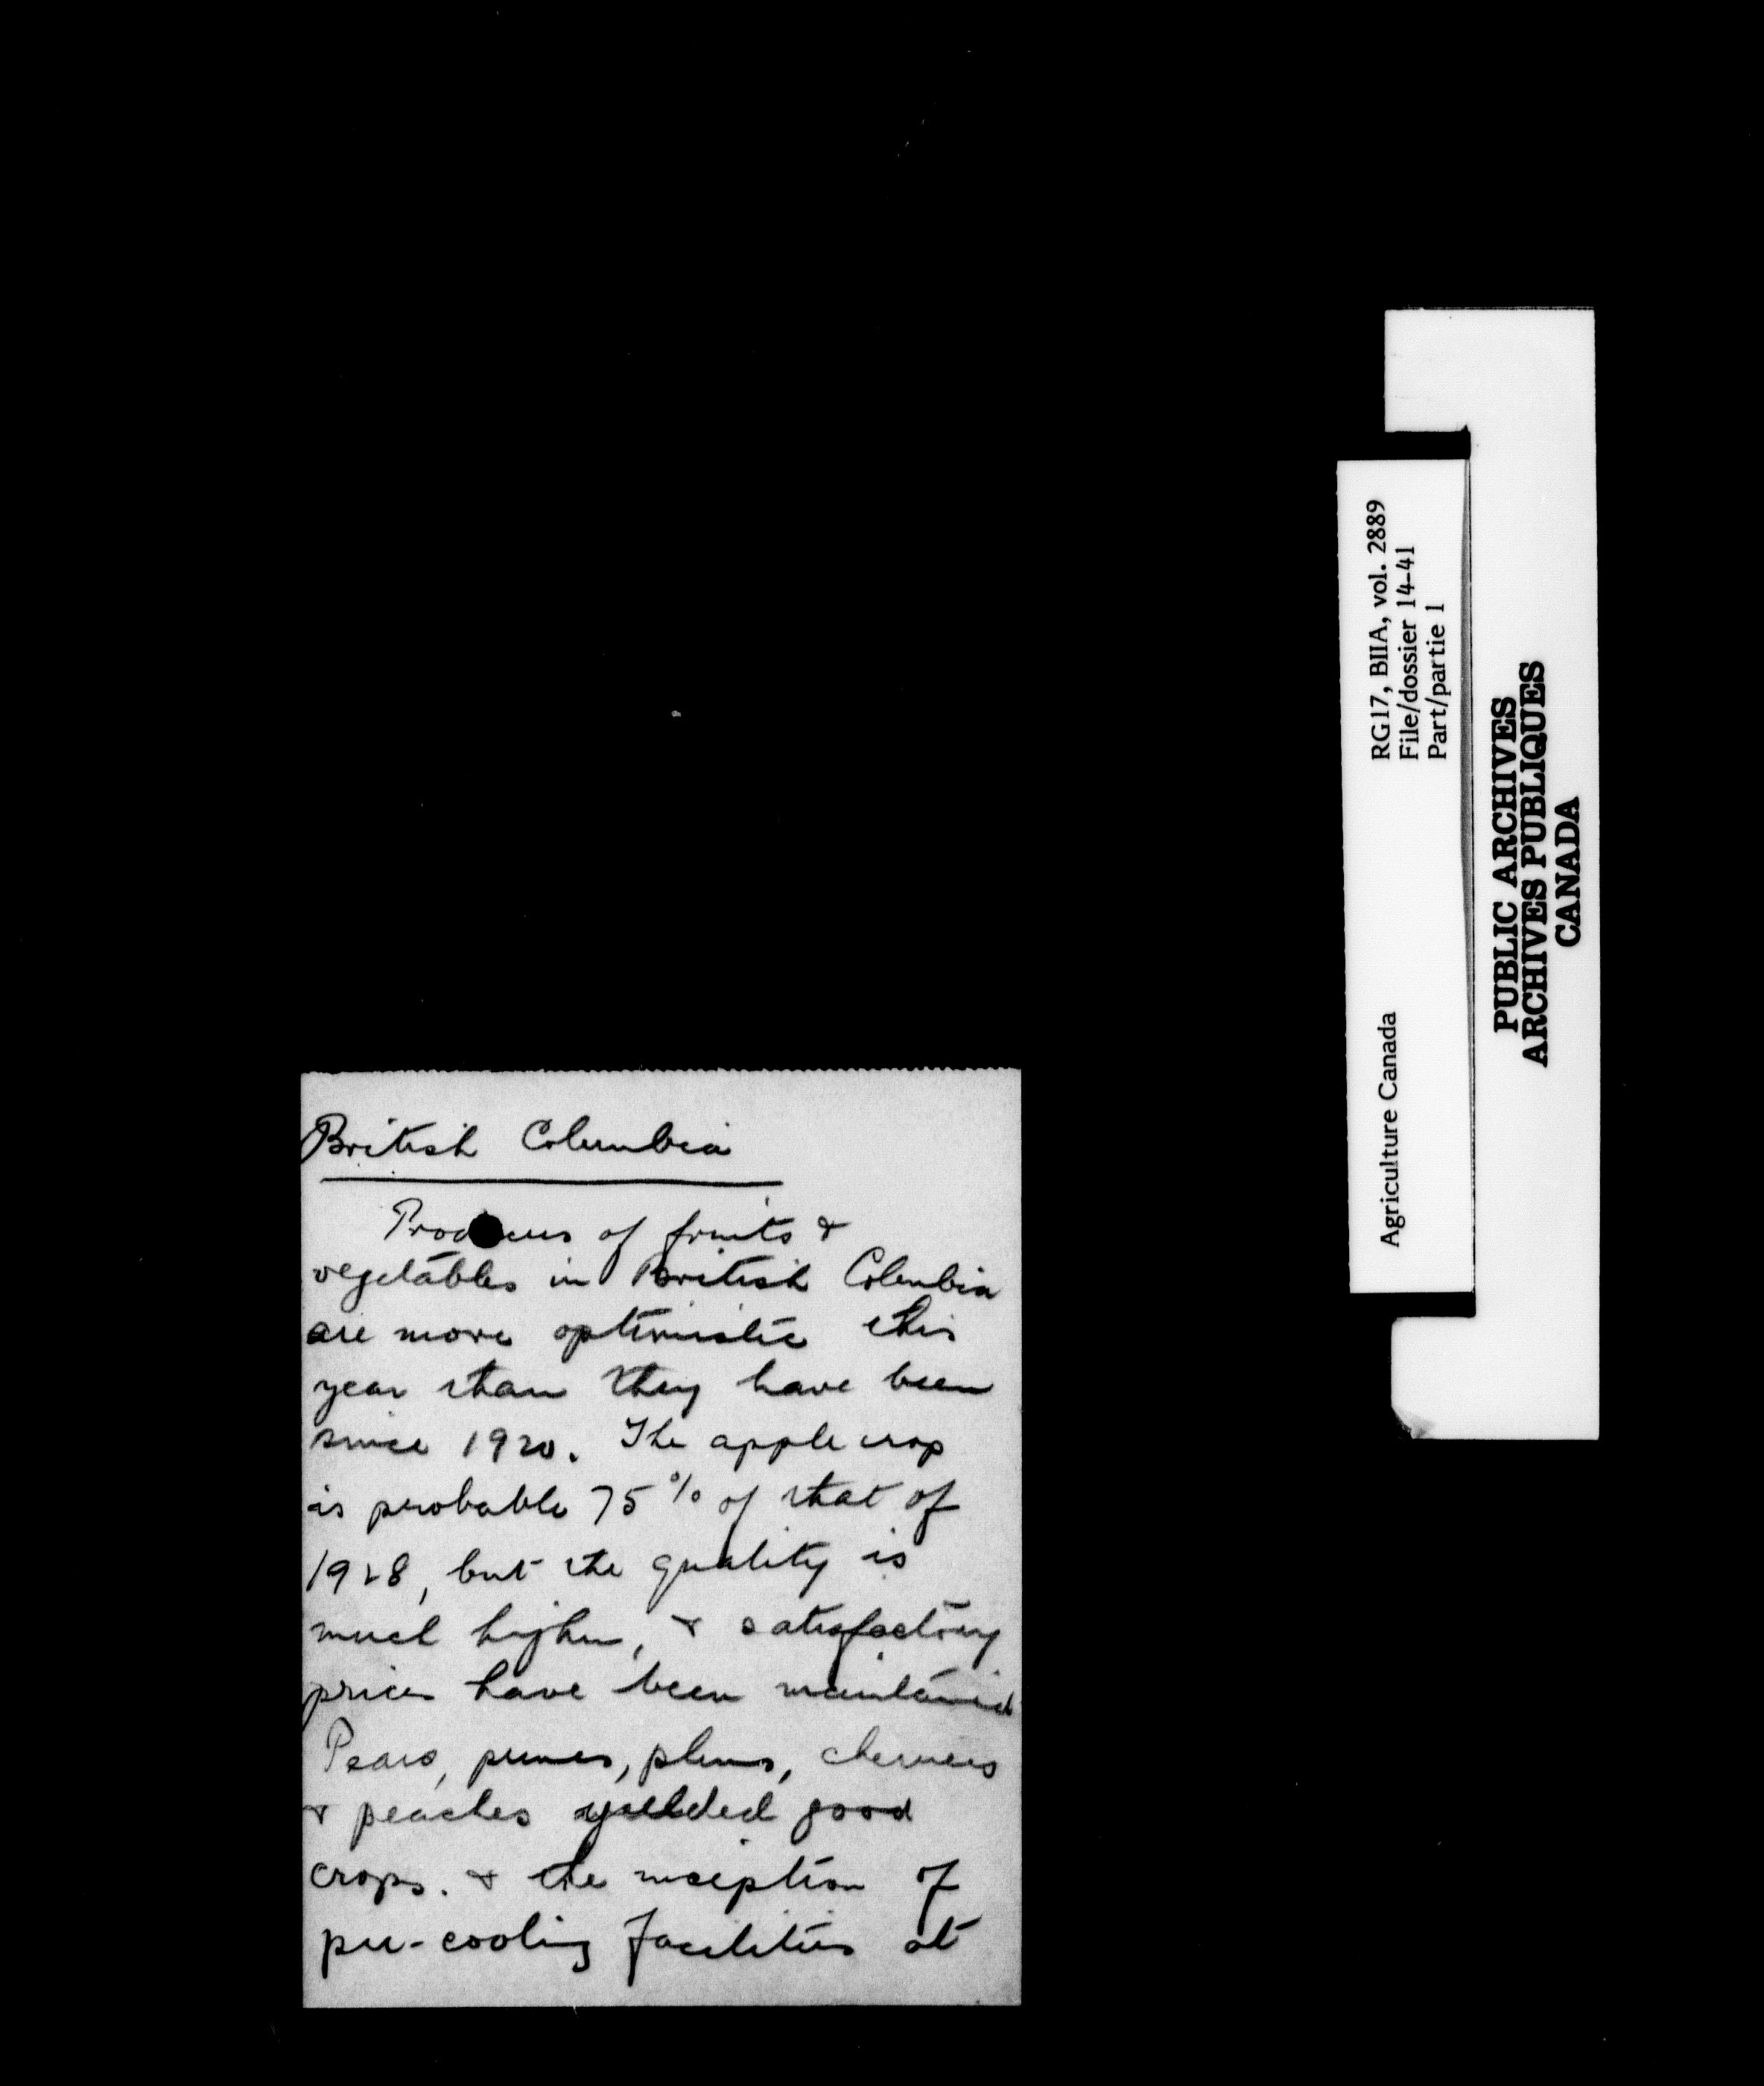 British Columbia
Producers of fruits &
vegetables in British Columbia
are more optimistic this
year than they have been
since 1920. The apple crop
is probable 75% of that of
1928, but the quality is
much higher, & satisfactory
prices have been maintained
Pears, prunes, plums, cherries
& peaches yielded good
crops. & the inception of
pre-cooling facilities at
RG17, BIIA, vol. 2889
File/dossier 14-41
Part/partie 1
Agriculture Canada
PUBLIC ARCHIVES
ARCHIVES PUBLIQUES
CANADA